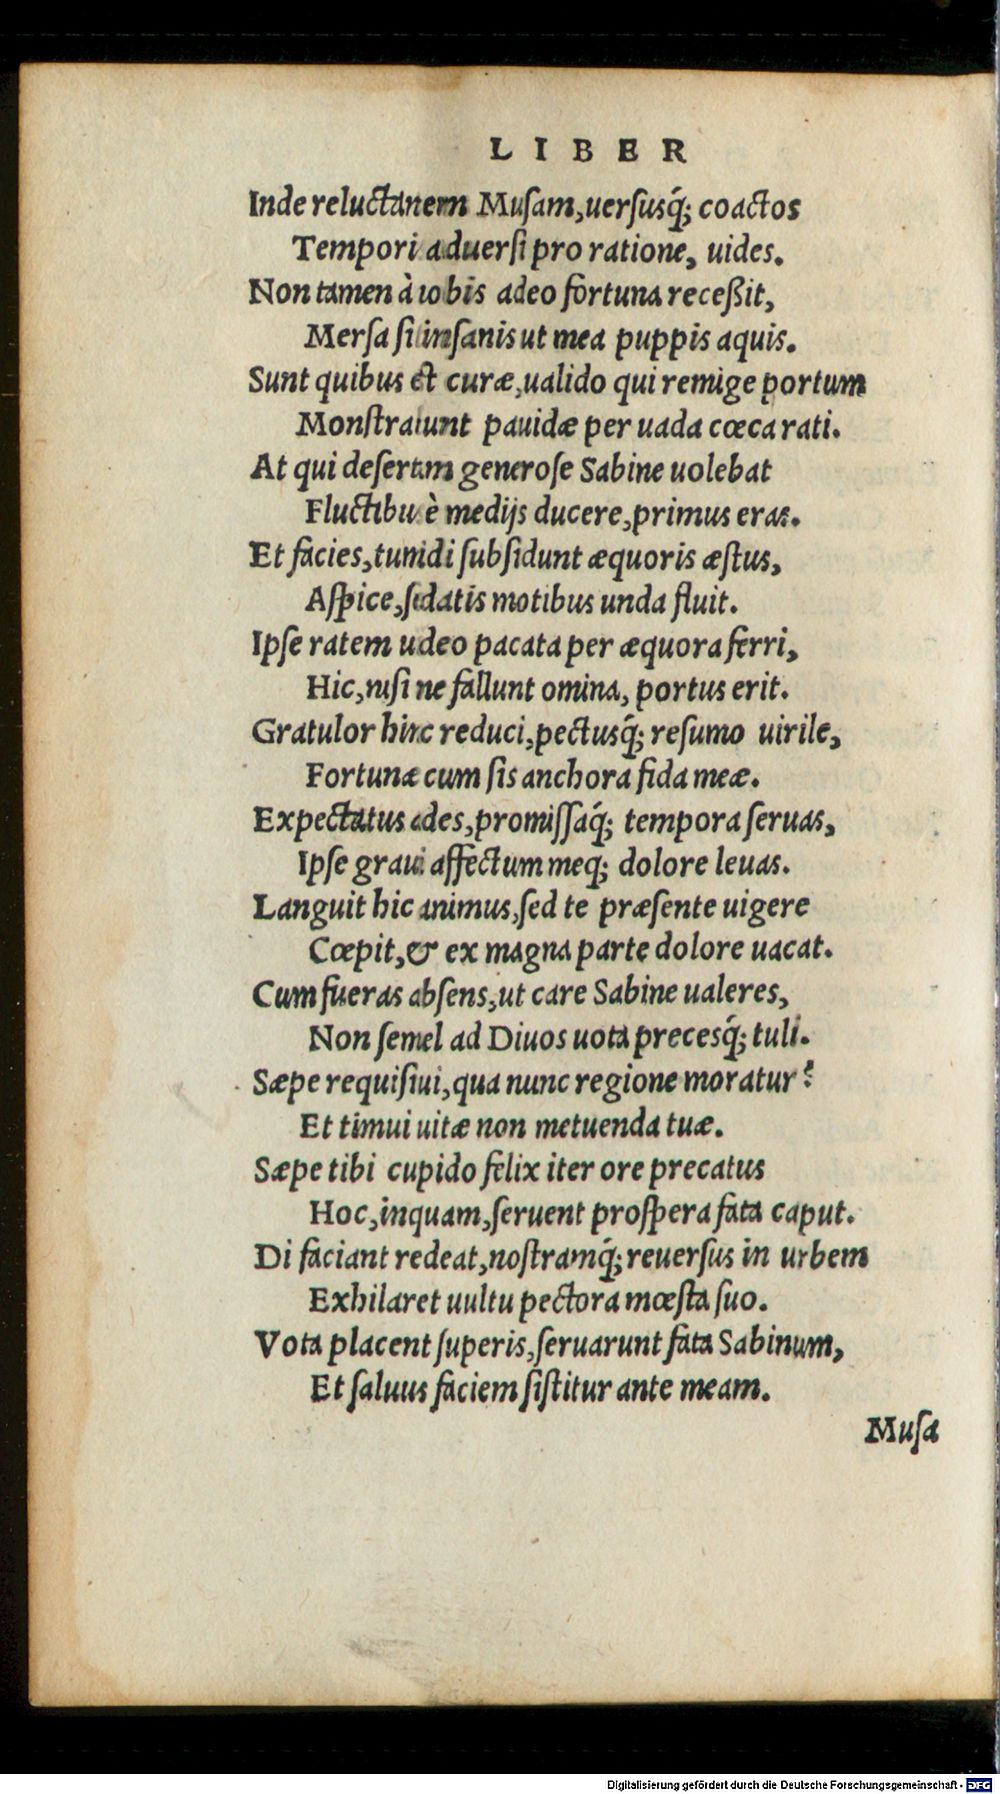 LIBER
Inde reluctanem Muſam, uerſusq́; coactos
Tempori aduerſi pro ratione, uides.
Non tamen à uobis adeo fortuna receßit,
Merſa ſi inſanis ut mea puppis aquis.
Sunt quibus et curæ, ualido qui remige portum
Monſtrarunt pauidæ per uada cœca rati.
At qui deſertam generoſe Sabine uolebat
Fluctibus è medijs ducere, primus eras.
Et facies, tumidi ſubſidunt æquoris æſtus,
Aſpice, ſedatis motibus unda fluit.
Ipſe ratem uideo pacata per æquora ferri,
Hic, niſi me fallunt omina, portus erit.
Gratulor hinc reduci, pectusq́; reſumo uirile,
Fortunæ cum ſis anchora fida meæ.
Expectatus ades, promiſſaq́; tempora ſeruas,
Ipſe graui affectum meq; dolore leuas.
Languit hic animus, ſed te præſente uigere
Cœpit, & ex magna parte dolore uacat.
Cum fueras abſens, ut care Sabine ualeres,
Non ſemel ad Diuos uota precesq́; tuli.
Sæpe requiſiui, qua nunc regione moratur?
Et timui uitæ non metuenda tuæ.
Sæpe tibi cupido felix iter ore precatus
Hoc, inquam, ſeruent proſpera fata caput.
Di faciant redeat, noſtramq́; reuerſus in urbem
Exhilaret uultu pectora mœſta ſuo.
Vota placent ſuperis, ſeruarunt fata Sabinum,
Et ſaluus faciem ſiſtitur ante meam.
Muſa
Digitalisierung gefördert durch die Deutsche Forschungsgemeinschaft - DFG